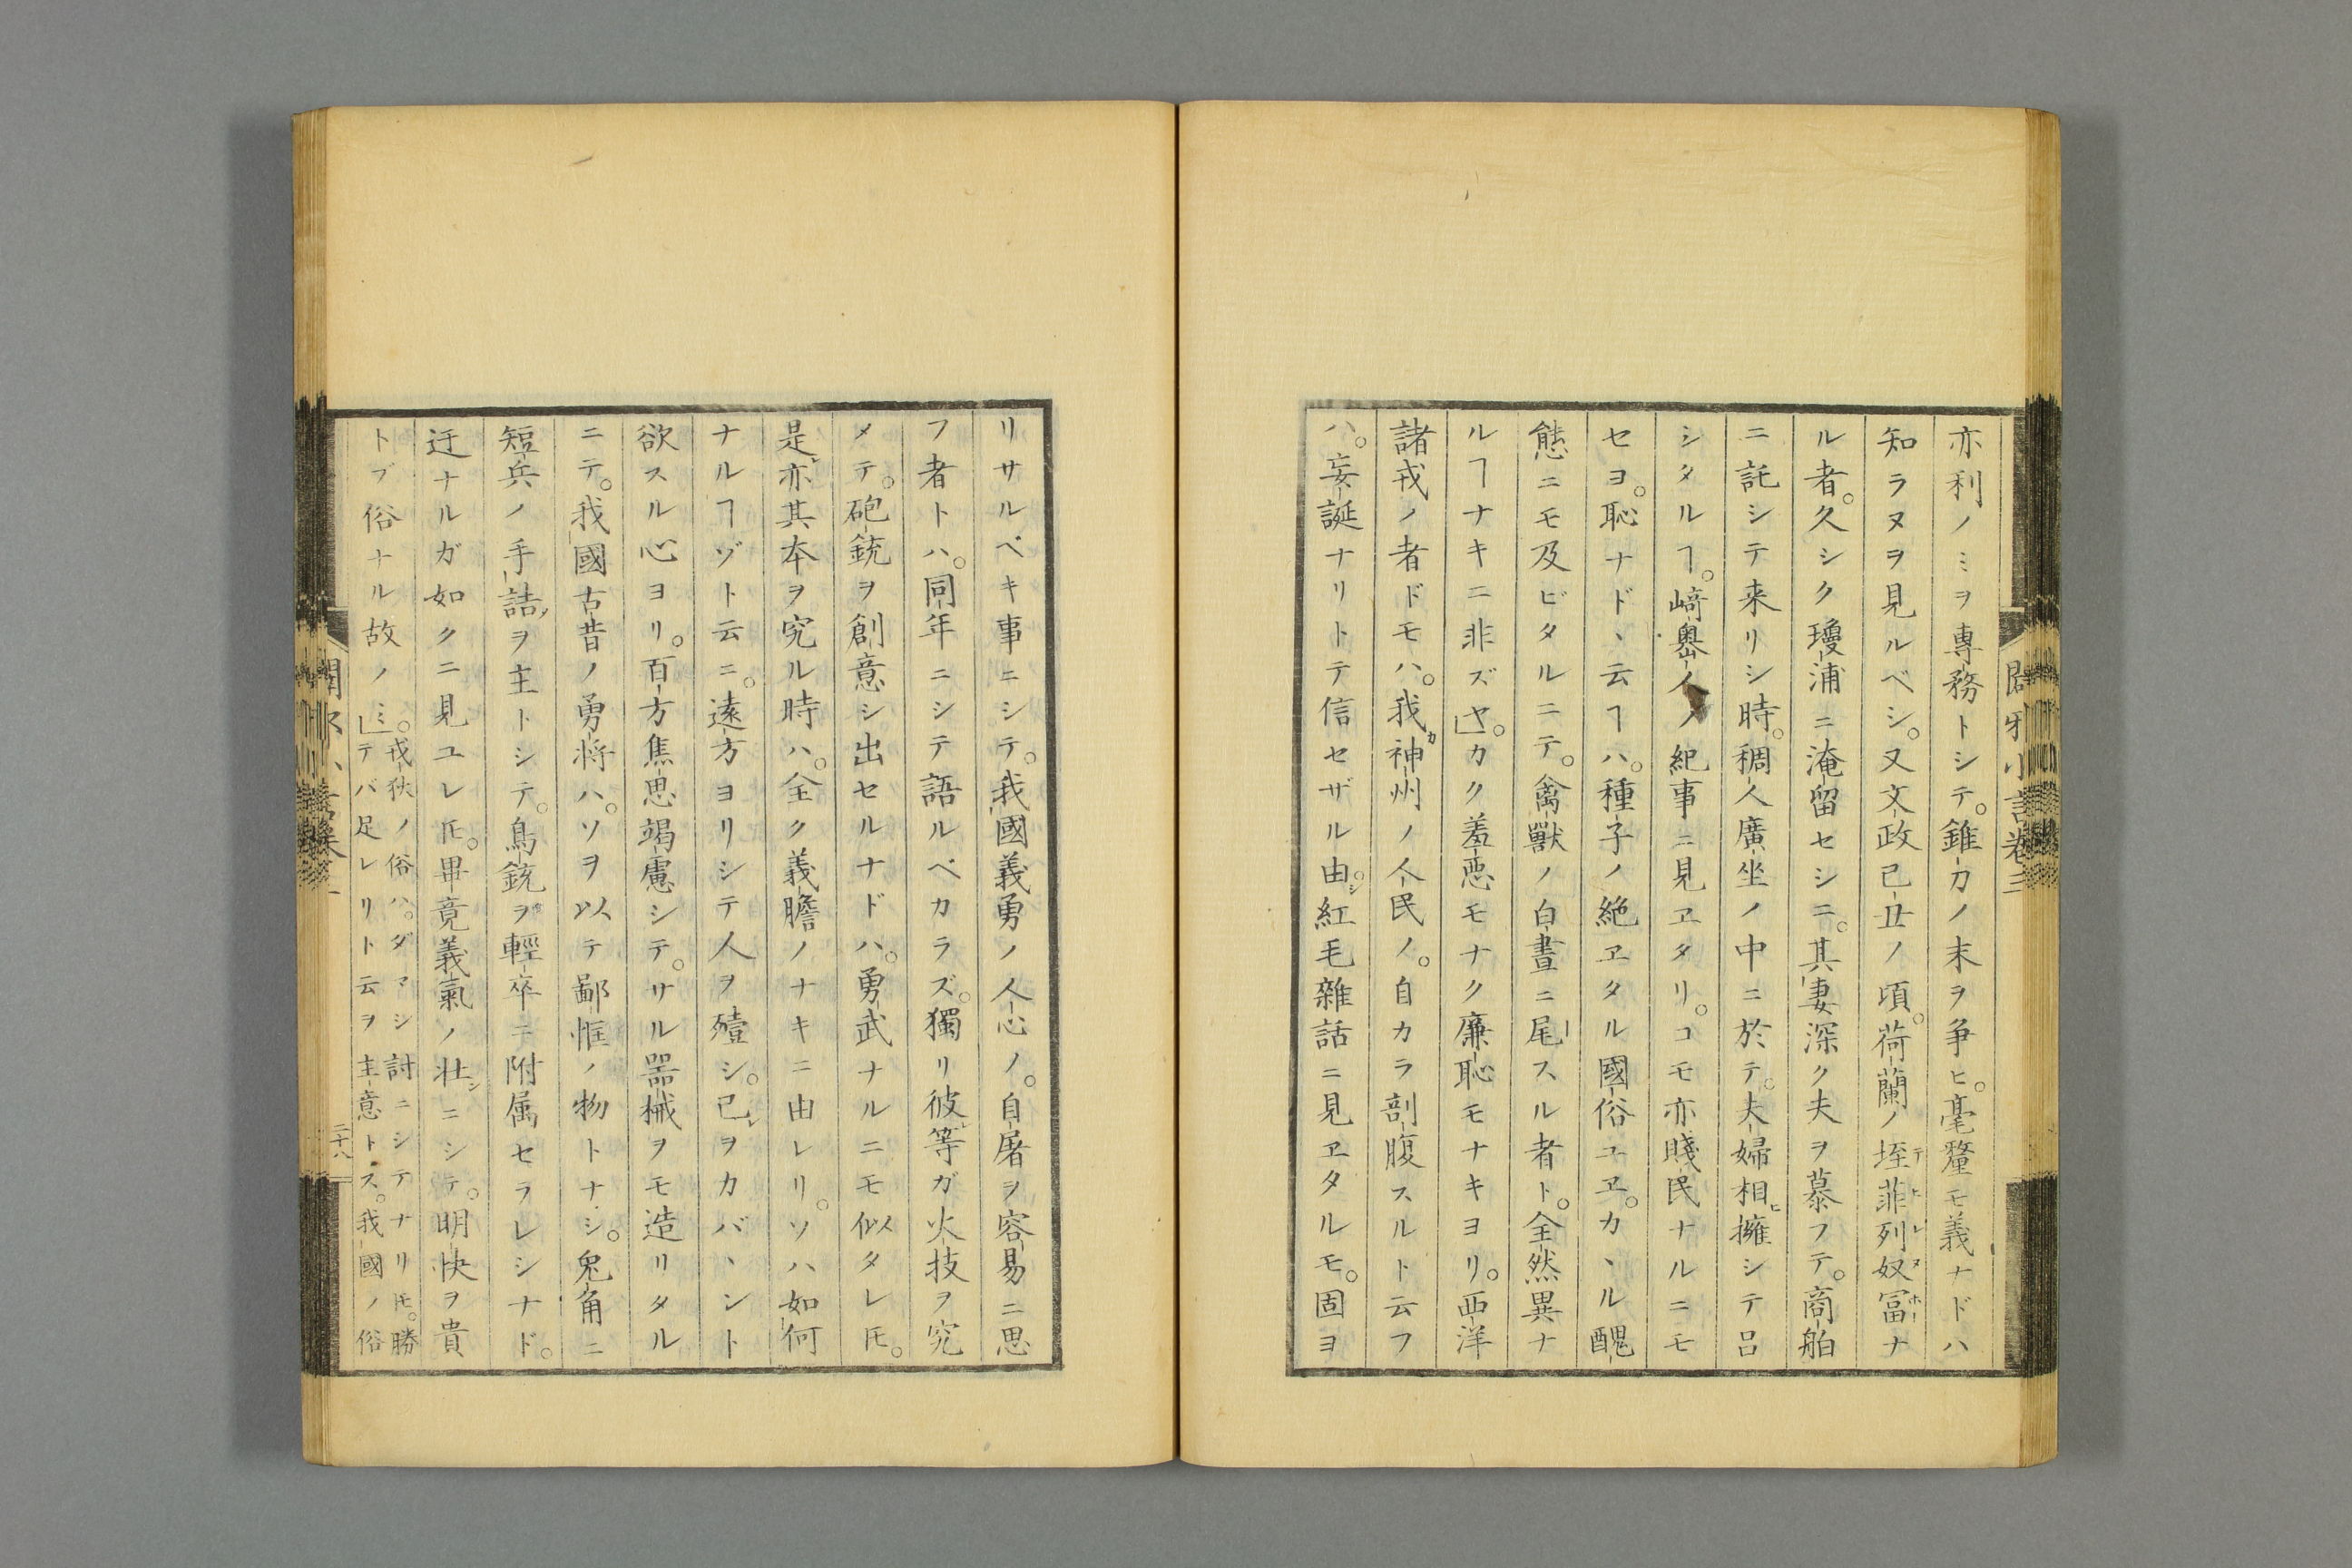 亦利ノミヲ專務トシテ。錐刀ノ末ヲ争ヒ。毫釐モ義ナドハ
知ラヌヲ見ルベシ。又文政己丑ノ頃。荷蘭ノ垤菲列奴冨ナ
ル者。久シク瓊浦ニ淹留セシニ。其妻深ク夫ヲ慕フテ。商舶
ニ託シテ来リシ時。稠人廣坐ノ中ニ於テ。夫婦相擁シテ呂
シタルヿ。﨑嶴人ノ紀事ニ見ヱタリ。コモ亦賤民ナルニモ
セヨ。恥ナドヽ云ヿハ。種子ノ絶ヱタル國俗ユヱ。カヽル醜
態ニモ及ビタルニテ。禽獸ノ白晝ニ尾スル者ト。全然異ナ
ルヿナキニ非ズヤ。カク羞悪モナク廉恥モナキヨリ。西洋
諸戎ノ者ドモハ。我神州ノ人民ノ。自カラ剖腹スルト云フ
ハ。妄誕ナリトテ信セザル由。紅毛雜話ニ見ヱタルモ。固ヨ
闢邪小言卷三
リサルベキ事ニシテ。我國義勇ノ人心ノ。自屠ヲ容易ニ思
フ者トハ。同年ニシテ語ルベカラズ。獨リ彼等ガ火技ヲ究
メテ。砲銃ヲ創意シ出セルナドハ。勇武ナルニモ似タレ𪜈。
是亦其本ヲ究ル時ハ。全ク義膽ノナキニ由レリ。ソハ如何
ナルヿゾト云ニ。遠方ヨリシテ人ヲ殪シ。己ヲカバヽント
欲スル心ヨリ。百方焦思竭慮シテ。サル器械ヲモ造リタル
ニテ。我國古昔ノ勇将ハ。ソヲ以テ鄙恇ノ物トナシ。兔角ニ
短兵ノ手詰ヲ主トシテ。鳥銃ヲ輕卒ニ附属セラレシナド。
迂ナルガ如クニ見ユレ𪜈。畢竟義氣ノ壮ニシテ。明快ヲ貴
トブ俗ナル故ノミ。戎狄ノ俗ハ。ダマシ討ニシテナリ𪜈。勝
テバ足レリト云ヲ主意トス。我國ノ俗
二十八